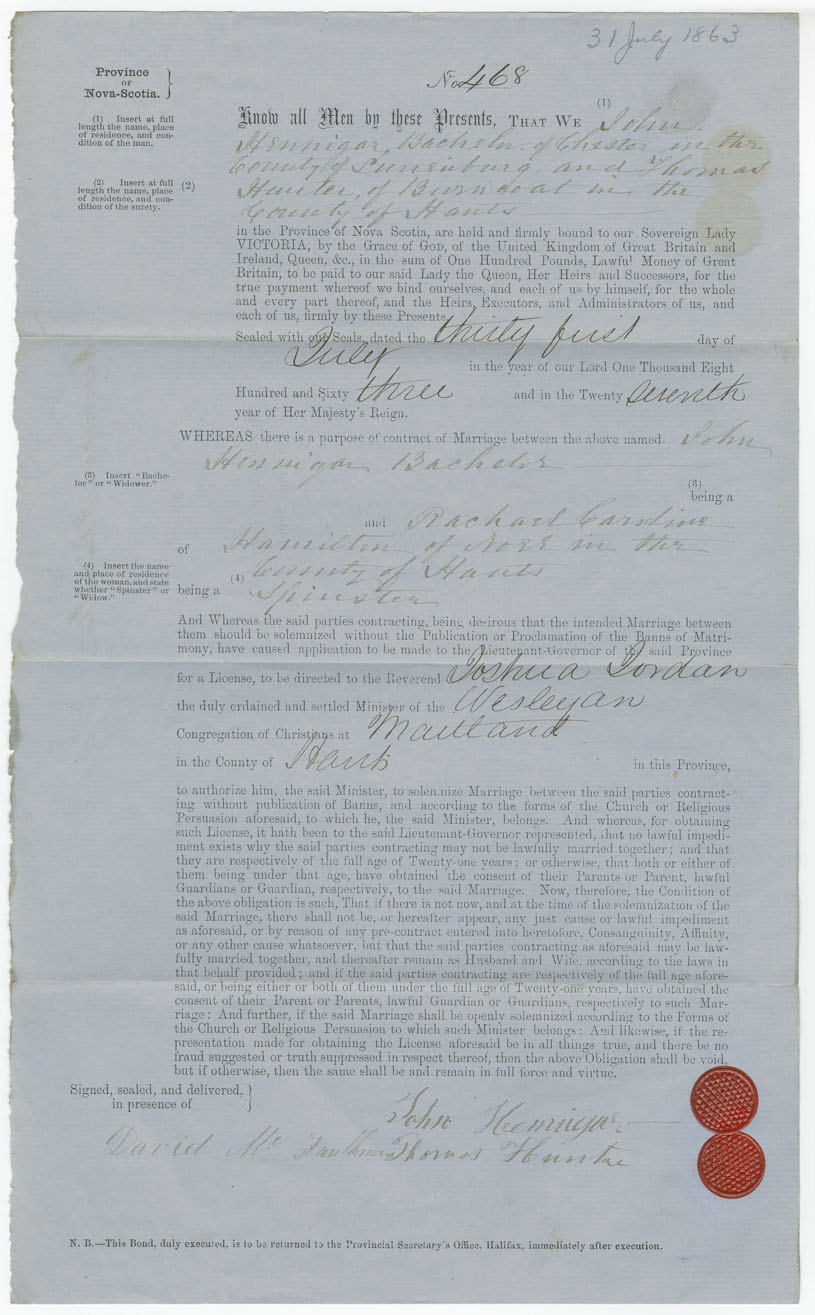 31 July 1863
Province
OF
Nova-Scotia.
No 468
(1) Insert at full
length the name, place
of residence, and con-
dition of the man.
(1)
Know all Men by these Presents, THAT WE John
Hennigar, Bachelor of Chester in the
County of Lunenburg, and Thomas
(2) Insert at full
length the name, place
of residence, and con-
dition of the surety.
(2)
Hunter, of Burncoat in the
County of Hants
in the Province of Nova Scotia, are held and firmly bound to our Sovereign Lady
VICTORIA, by the Grace of GOD, of the United Kingdom of Great Britain and
Ireland, Queen, &c., in the sum of One Hundred Pounds, Lawful Money of Great
Britain, to be paid to our said Lady the Queen, Her Heirs and Successors, for the
true payment whereof we bind ourselves, and each of us by himself, for the whole
and every part thereof, and the Heirs, Executors, and Administrators of us, and
each of us, firmly by these Presents.
Sealed with our Seals, dated the thirty first day of
July in the year of our Lord One Thousand Eight
Hundred and Sixty three and in the Twenty seventh
year of Her Majesty's Reign.
WHEREAS there is a purpose of contract of Marriage between the above named John
Hennigar Bachelor
(3) Insert "Bache-
lor" or "Widower."
(3)
being a
and Rachael Caroline
of Hamilton of Noel in the
(4) Insert the name
and place of residence
of the woman, and state
whether "Spinster" or
"Widow."
(4)
County of Hants
being a Spinster
And Whereas the said parties contracting, being desirous that the intended Marriage between
them should be solemnized without the Publication or Proclamation of the Banns of Matri-
mony, have caused application to be made to the Lieutenant-Governor of the said Province
for a License, to be directed to the Reverend Joshua Jordan
the duly ordained and settled Minister of the Wesleyan
Congregation of Christians at Maitland
in the County of Hants in this Province,
to authorize him, the said Minister, to solemnize Marriage between the said parties contract-
ing without publication of Banns, and according to the forms of the Church or Religious
Persuasion aforesaid, to which he, the said Minister, belongs. And whereas, for obtaining
such License, it hath been to the said Lieutenant-Governor represented, that no lawful impedi-
ment exists why the said parties contracting may not be lawfully married together; and that
they are respectively of the full age of Twenty-one years; or otherwise, that both or either of
them being under that age, have obtained the consent of their Parents or Parent, lawful
Guardians or Guardian, respectively, to the said Marriage. Now, therefore, the Condition of
the above obligation is such, That if there is not now, and at the time of the solemnization of the
said Marriage, there shall not be, or hereafter appear, any just cause or lawful impediment
as aforesaid, or by reason of any pre-contract entered into heretofore, Consanguinity, Affinity,
or any other cause whatsoever, but that the said parties contracting as aforesaid may be law-
fully married together, and thereafter remain as Husband and Wife, according to the laws in
that behalf provided; and if the said parties contracting are respectively of the full age afore-
said, or being either or both of them under the full age of Twenty-one years, have obtained the
consent of their Parent or Parents, lawful Guardian or Guardians, respectively to such Mar-
riage: And further, if the said Marriage shall be openly solemnized according to the Forms of
the Church or Religious Persuasion to which such Minister belongs: And likewise, if the re-
presentation made for obtaining the License aforesaid be in all things true, and there be no
fraud suggested or truth suppressed in respect thereof, then the above Obligation shall be void,
but if otherwise, then the same shall be and remain in full force and virtue.
Signed, sealed, and delivered,
in presence of
John Hennigar
David Mc Faulkner Thomas Hunter
N. B.—This Bond, duly executed, is to be returned to the Provincial Secretary's Office, Halifax, immediately after execution.